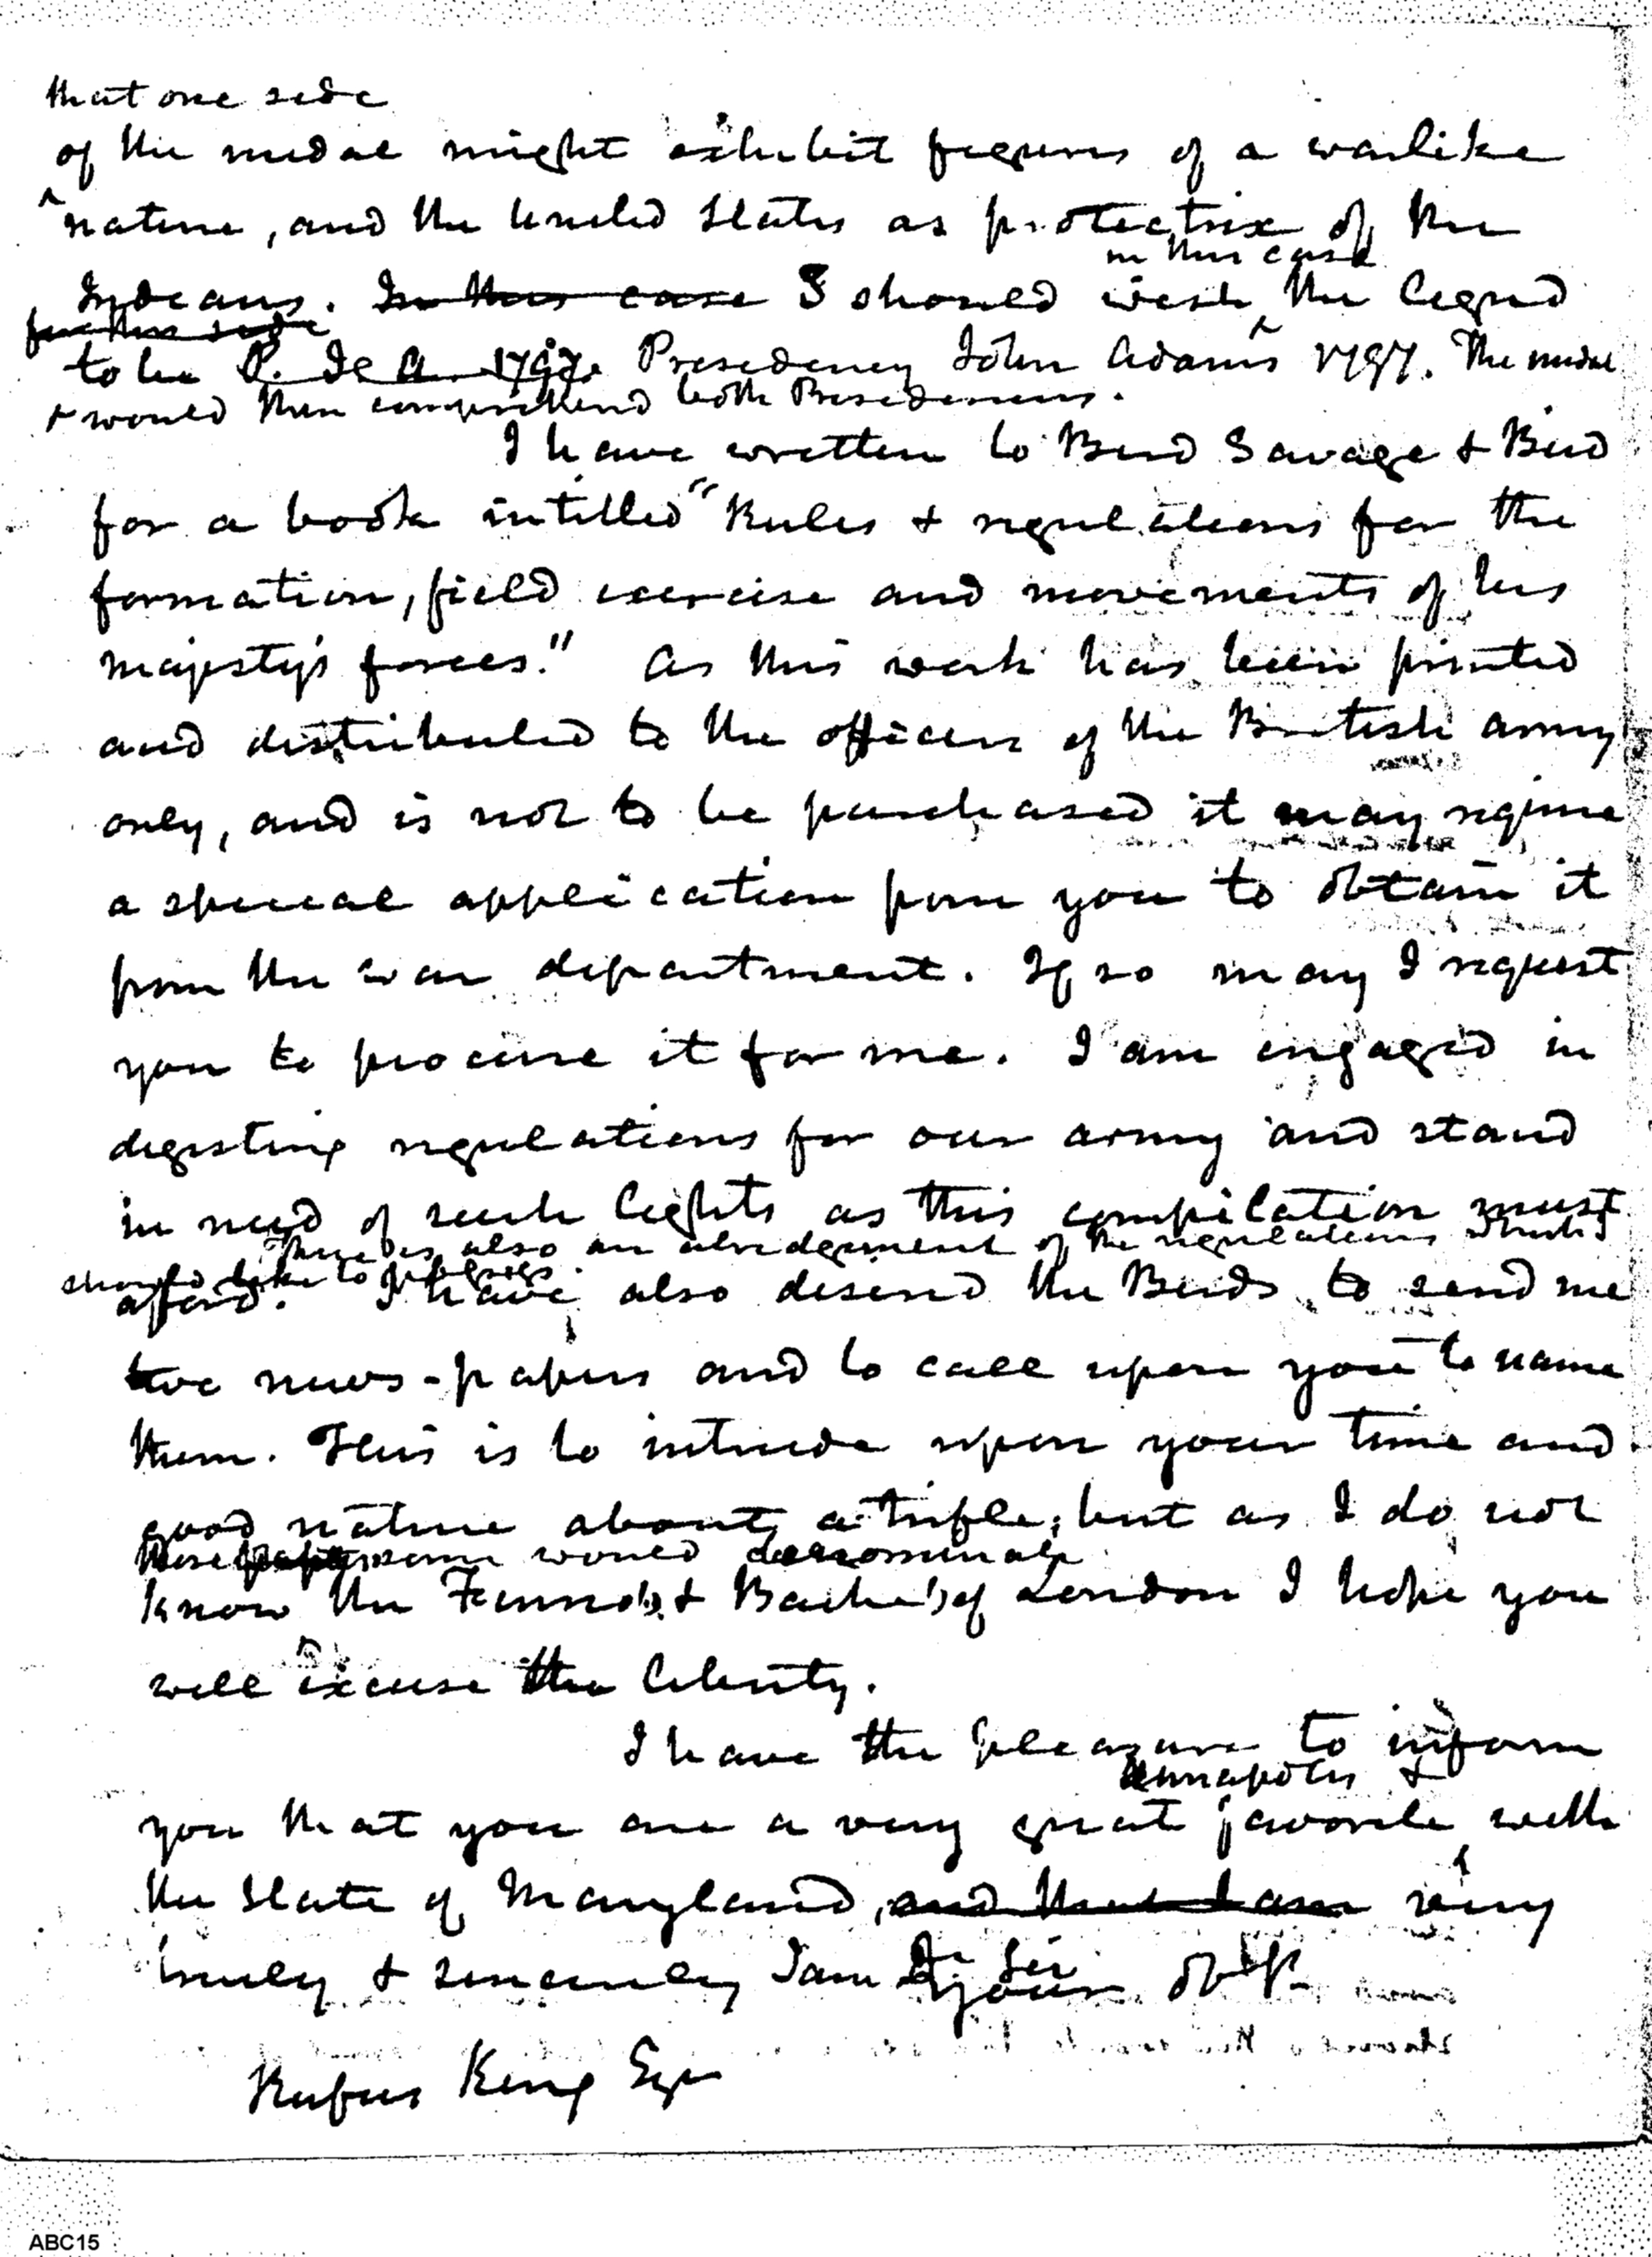 that one side
of the medal might exhibit figures of a warlike
nature, and the United States as protectrix of the
in this case
Indians. In this case I should wish the legend
for this side
to be P. J. A. 1797. Presidency John Adams 1797. The medal
would then comprehend both Presidencies.
I have written to Bird Savage & Bird
for a book intitled "Rules & regulations for the
formation, field exercise and movements of his
majesty's forces." As this work has been printed
and distributed to the officers of the British army
only, and is not to be purchased it may require
a special application from you to obtain it
from the war department. If so may I request
you to procure it for me. I am engaged in
digesting regulations for our army and stand
in need of such lights as this compilation must
There is also an abridgement of the regulations which I
should like to possess.
afford. I have also desired the Birds to send me
two news-papers and to call upon you to name
them. This is to intrude upon your time and
good nature about a trifle; but as I do not
know the Fenno's & Bache's of London I hope you
those some would denominate
will excuse the liberty.
I have the pleasure to inform
Annapolis &
you that you are a very great favorite with
the State of Maryland, and that I am very
truly & sincerely I am Dr Sir your obt
Rufus King Esqr
ABC15